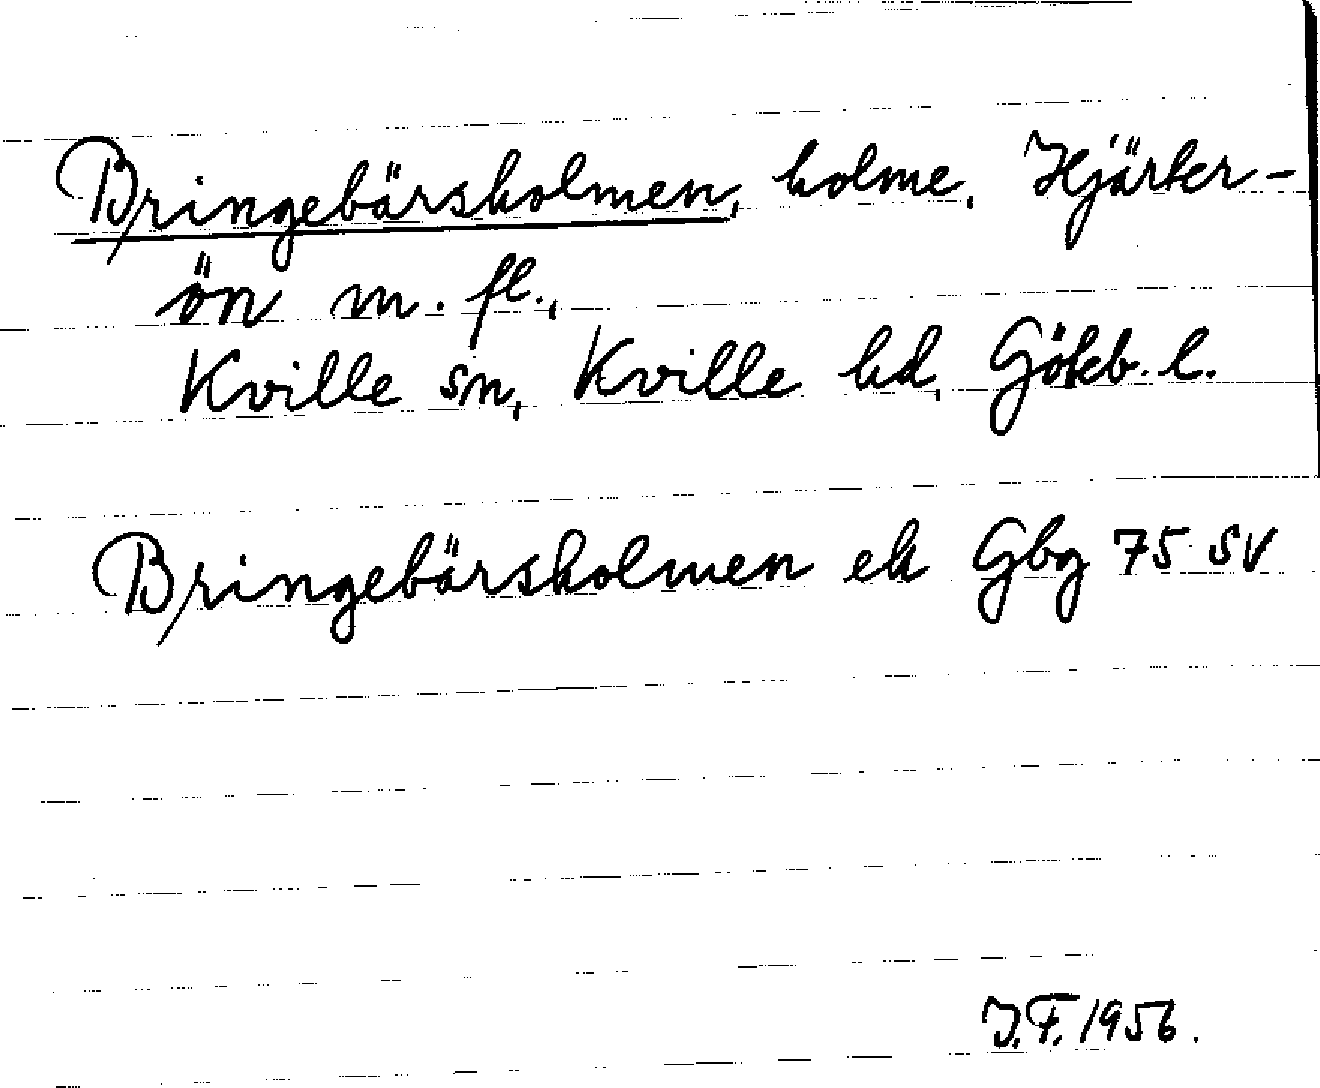 Bringebärsholmen, holme. Hjärter-
ön m. fl.,
Kville sn, Kville hd, Göteb. l.
Bringebärsholmen ek Gbg 75 SV
J.F. 1956.